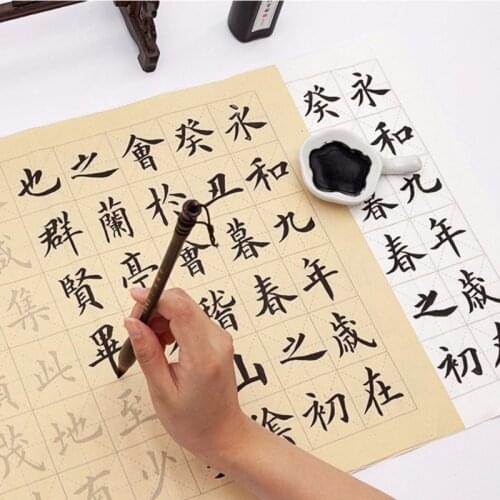 永和九年歲
癸春之初
永和九年歲在
癸丑暮春之初
會於會稽山陰
之蘭亭
也群賢畢至少
咸集此地
領茂